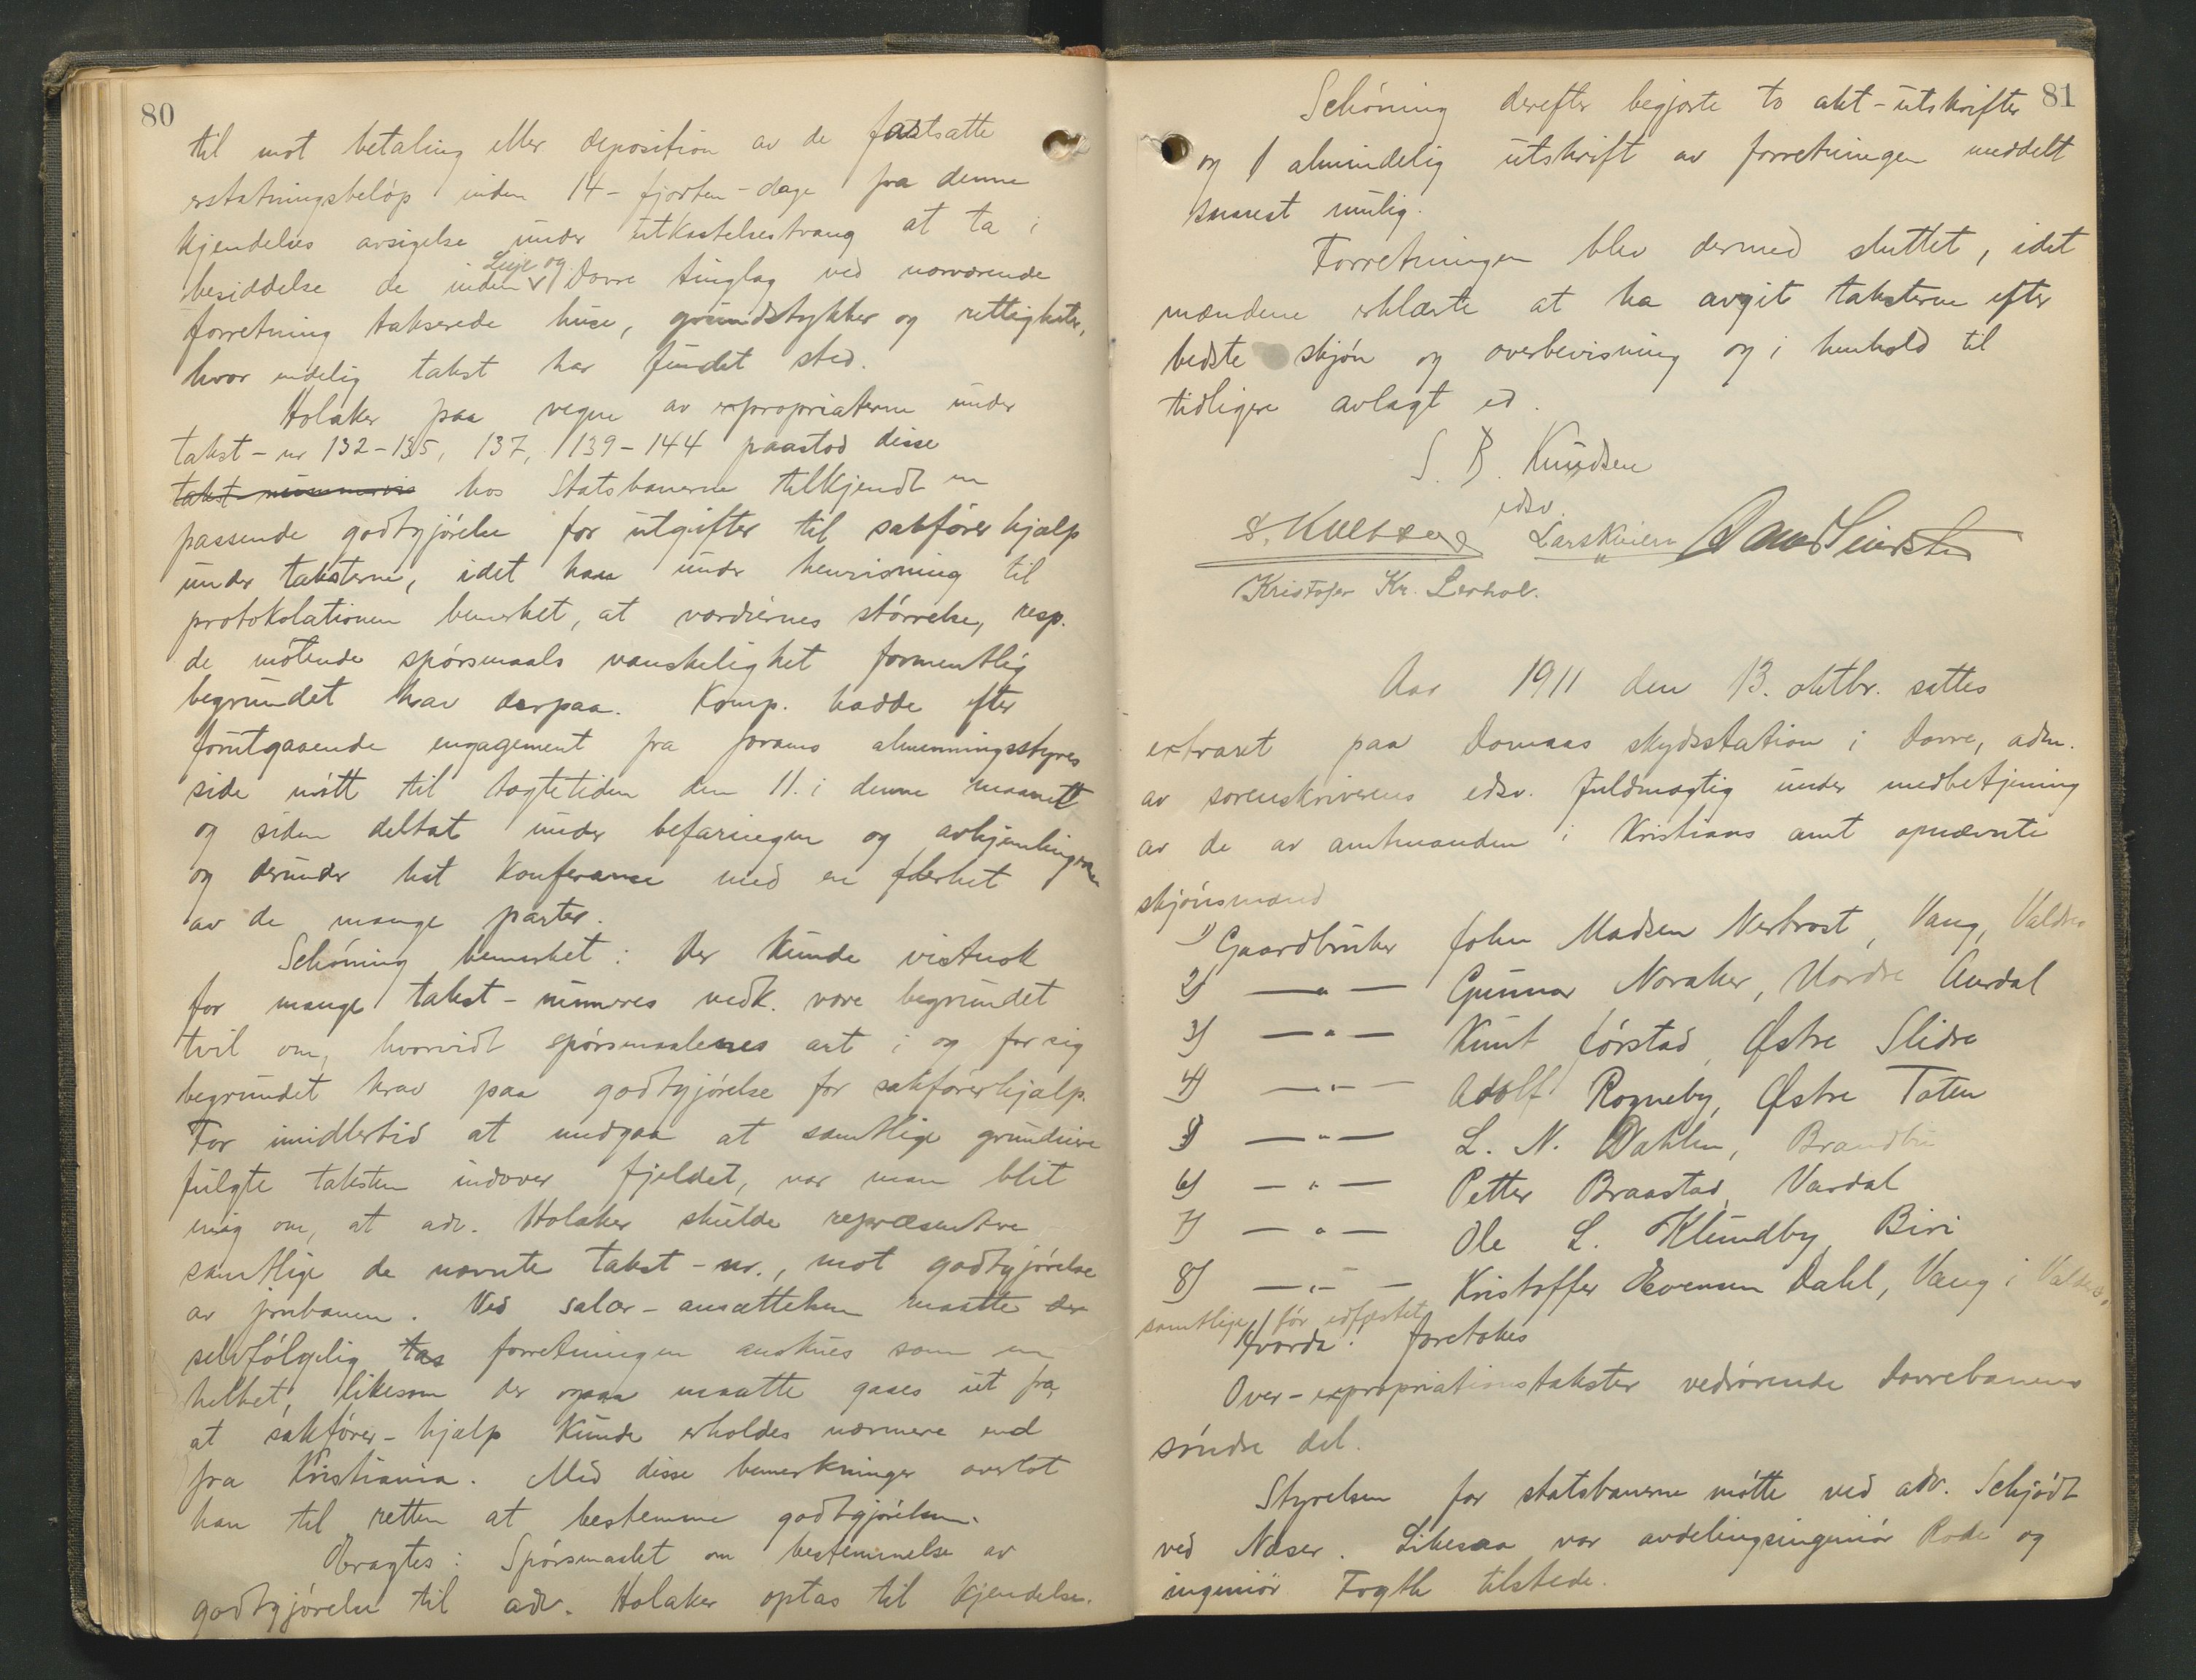 80
til mot betaling eller deposition av de fastsatte
erstatningsbeløp inden 14 - fjorten - dage fra denne
kjendelses avsigelse under utkastelsestvang at ta i
besiddelse de inden Lesje og Dovre tinglag ved nærværende
forretning takserede huse, grundstykker og rettigheter,
hvor endelig takst har fundet sted.
Holaker paa vegne av expropriaterne under
takst-nr 132-135, 137, 139-144 paastod disse
hos Statsbanerne tilkjendt en
passende godtgjørelse for utgifter til sakførerhjælp
under taksterne, idet han under henvisning til
protokolationen bemerket, at værdiernes størrelse, resp.
de møtende spørsmaals vanskelighet formentlig
begrundet krav derpaa. Komp. hadde efter
forutgaaende engagement fra Joramo almenningsstyres
side møtt til tægtetiden den 11. i denne maaned
og siden deltat under befaringen og avhjemlingen
og derunder hat konferanse med en flerhet
av de mange parter.
Schøning bemerket: Der kunde vistnok
for mange takst-numeres vedk. være begrundet
tvil om, hvorvidt spørsmaalenes art i og for sig
begrundet krav paa godtgjørelse for sakførerhjælp.
For imidlertid at undgaa at samtlige grundeiere
fulgte taksten indover fjeldet, var man blit
enig om, at adv. Holaker skulde repræsentere
samtlige de nævnte takst-nr., mot godtgjørelse
av jernbanen. Ved salær-ansættelsen maatte der
selvfølgelig tas forretningen ansknes som en
helhet, likesom der ogsaa maatte gaaes ut fra,
at sakfører-hjælp kunde erholdes nærmere end
fra Kristiania. Med disse bemerkninger overlot
han til retten at bestemme godtgjørelsen.
Eragtes: Spørsmaalet om bestemmelse av
godtgjørelse til adv. Holaker optas til kjendelse.
81
Schøning derefter begjærte to akt-utskrifter
og 1 almindelig utskrift av forretningen meddelt
snarest mulig.
Forretningen blev dermed sluttet, idet
mændene erklærte at ha avgit taksterne efter
bedste skjøn og overbevisning og i henhold til
tidligere avlagt ed.
S. B. Knudsen
edsv.
Lars Kviem
Kristofer Kr.
Aar 1911 den 13. oktbr. sattes
extraret paa Domaas skydsstation i Dovre, adm.
av sorenskriverens edsv. fuldmægtig under medbetjening
av de av amtmanden i Kristians amt opnævnte
skjønsmænd
1) Gaardbruker John Madsen Nerbrost, Vang, Valdres
2) — " — Gunnar Noraker, Nordre Aurdal
3) — " — Knut Jørstad, Østre Slidre
4) — " — Adolf Rogneby, Østre Toten
5) — " — L. N. Dahlen, Brandbu
6) — " — Petter Braastad, Vardal
7) — " — Ole L. Klundby, Biri
8) — " — Kristoffer Evensen Dahl, Vang i Valdres,
samtlige før edfæstet
Hvorda: foretokes
Over-expropriationstakster vedrørende Dovrebanens
søndre del.
Styrelsen for statsbanerne møtte ved adv. Schjødt
ved Næser. Likesaa var avdelingsingeniør Rode og
ingeniør Fogth tilstede.